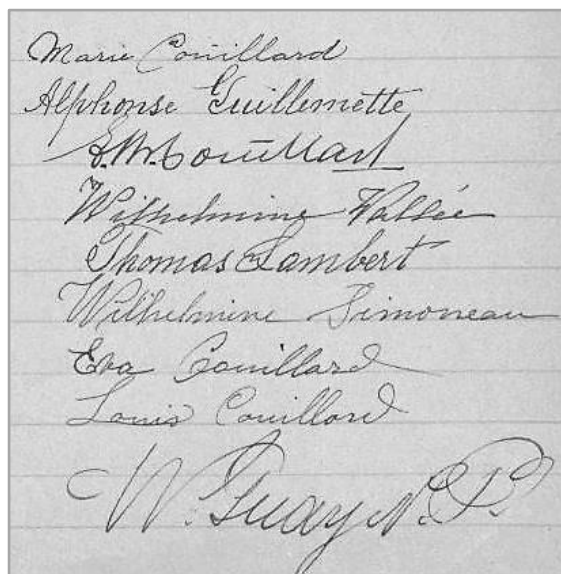 Marie Couillard
Alphonse Guillemette
Couillard
Wilhelmine Vallée
Thomas Lambert
Wilhelmine Simoneau
Eva Couillard
Louis Couillard
W. Guay N.P.